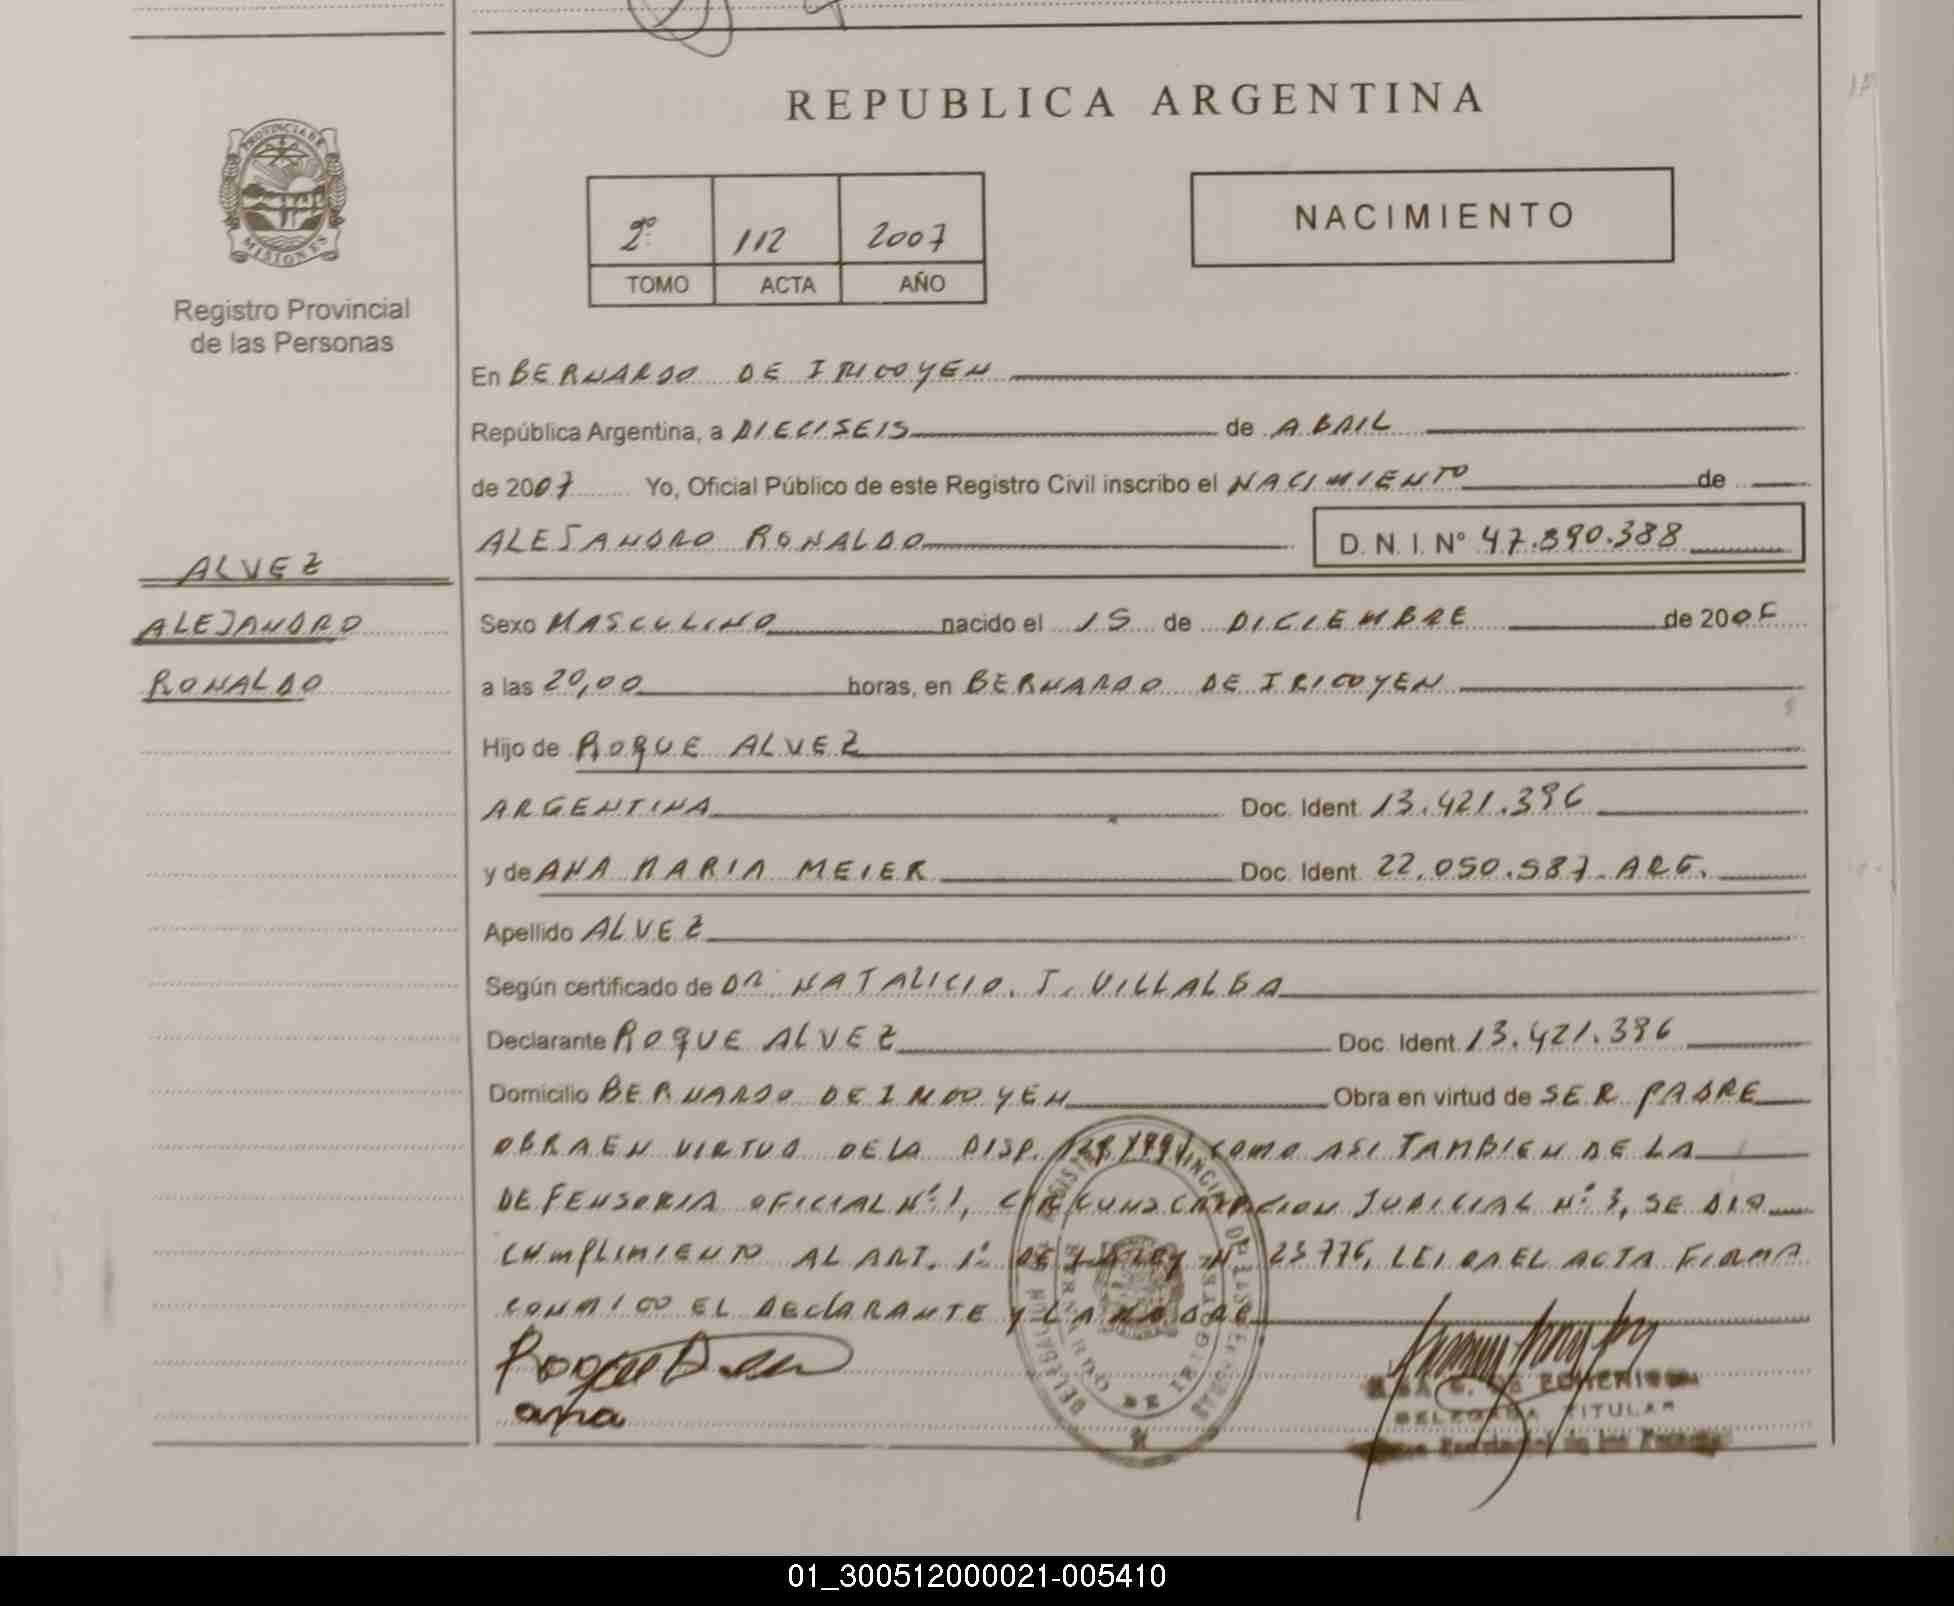 REPUBLICA ARGENTINA
PROVINCIA DE
MISIONES
Registro Provincial
de las Personas
2º 112 2007
TOMO ACTA AÑO
NACIMIENTO
En BERNARDO DE IRIGOYEN
República Argentina, a DIECISEIS de ABRIL
de 2007 Yo, Oficial Público de este Registro Civil inscribo el NACIMIENTO de
ALEJANDRO RONALDO D. N. I. Nº 47.890.388
ALVEZ
ALEJANDRO
RONALDO
Sexo MASCULINO nacido el 15 de DICIEMBRE de 2006
a las 20,00 horas, en BERNARDO DE IRIGOYEN
Hijo de ROQUE ALVEZ
ARGENTINA Doc. Ident. 13.421.396
y de ANA MARIA MEIER Doc. Ident. 22.050.587. ARG.
Apellido ALVEZ
Según certificado de DR. NATALICIO. J. VILLALBA
Declarante ROQUE ALVEZ Doc. Ident. 13.421.396
Domicilio BERNARDO DE IRIGOYEN Obra en virtud de SER PADRE
OBRA EN VIRTUD DE LA DISP. COMO ASI TAMBIEN DE LA
DEFENSORIA OFICIAL Nº 1, CIRCUNSCRIPCION JUDICIAL Nº 3, SE DIO
CUMPLIMIENTO AL ART. 1º DE LA LEY Nº 23776, LEIDA EL ACTA FIRMA
CONMIGO EL DECLARANTE Y LA MADRE
Roque
ana
DELEGADA TITULAR
01_300512000021-005410